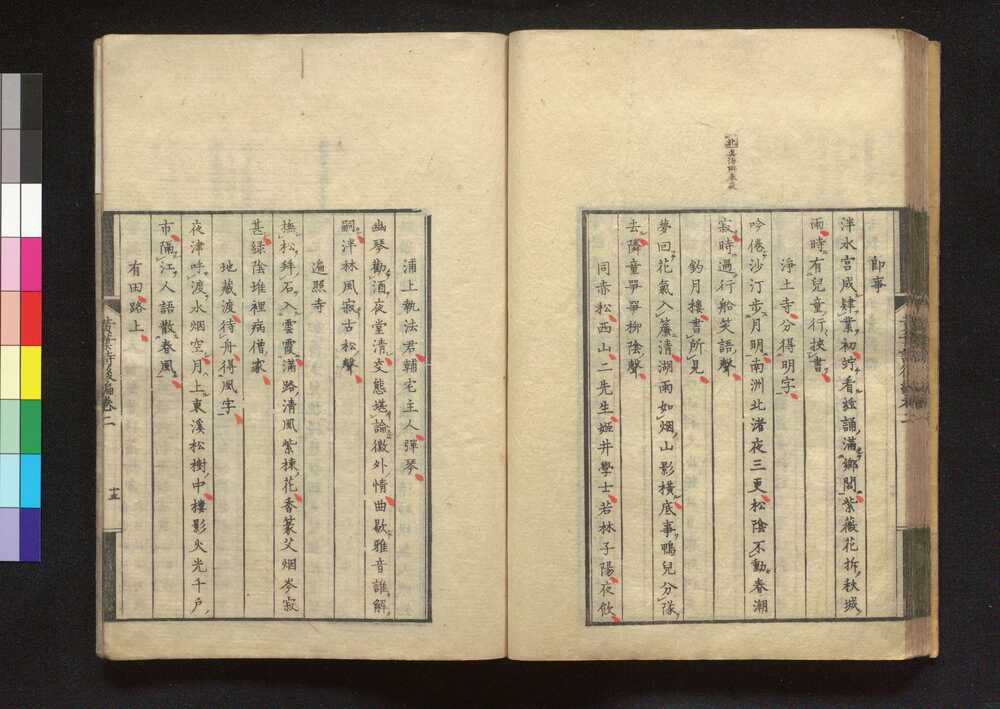 即事
泮水宮成肄業初竚看絃誦滿鄉閭紫薇花拆秋城
雨時有兒童行挾書
淨土寺分得明字
吟倦沙汀步月明南洲北渚夜三更松陰不動春潮
寂時過行船笑語聲
釣月樓書所見
夢回花氣入簾清湖雨如烟山影橫底事鴨兒分隊
去隣童爭爭柳陰聲
同赤松西山二先生姬井學士若林子陽夜飲
浦上執法君輔宅主人彈琴
幽琴勸酒夜堂清交態堪論徽外情曲歇雅音誰解
嗣泮林風寂古松聲
遍照寺
撫松拜石入雲霞滿路清風紫楝花香篆父烟岑寂
甚綠陰堆裡病僧家
地藏渡待舟得風字
夜津呼渡水烟空月上東溪松樹中樓影火光千戶
市隔江人語散春風
有田路上
黃葉詩後編卷二
十五